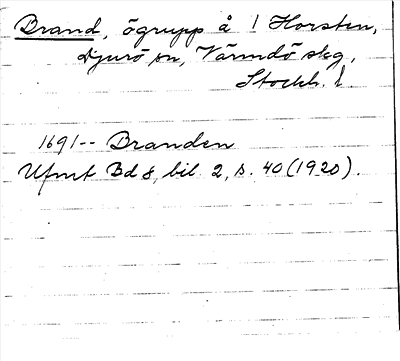 Brand, ögrupp å l Horsten,
Djurö sn, Värmdö skg,
Stockh. l.
1691-- Branden
Ufmt Bd 8, bil. 2, s. 40 (1920).